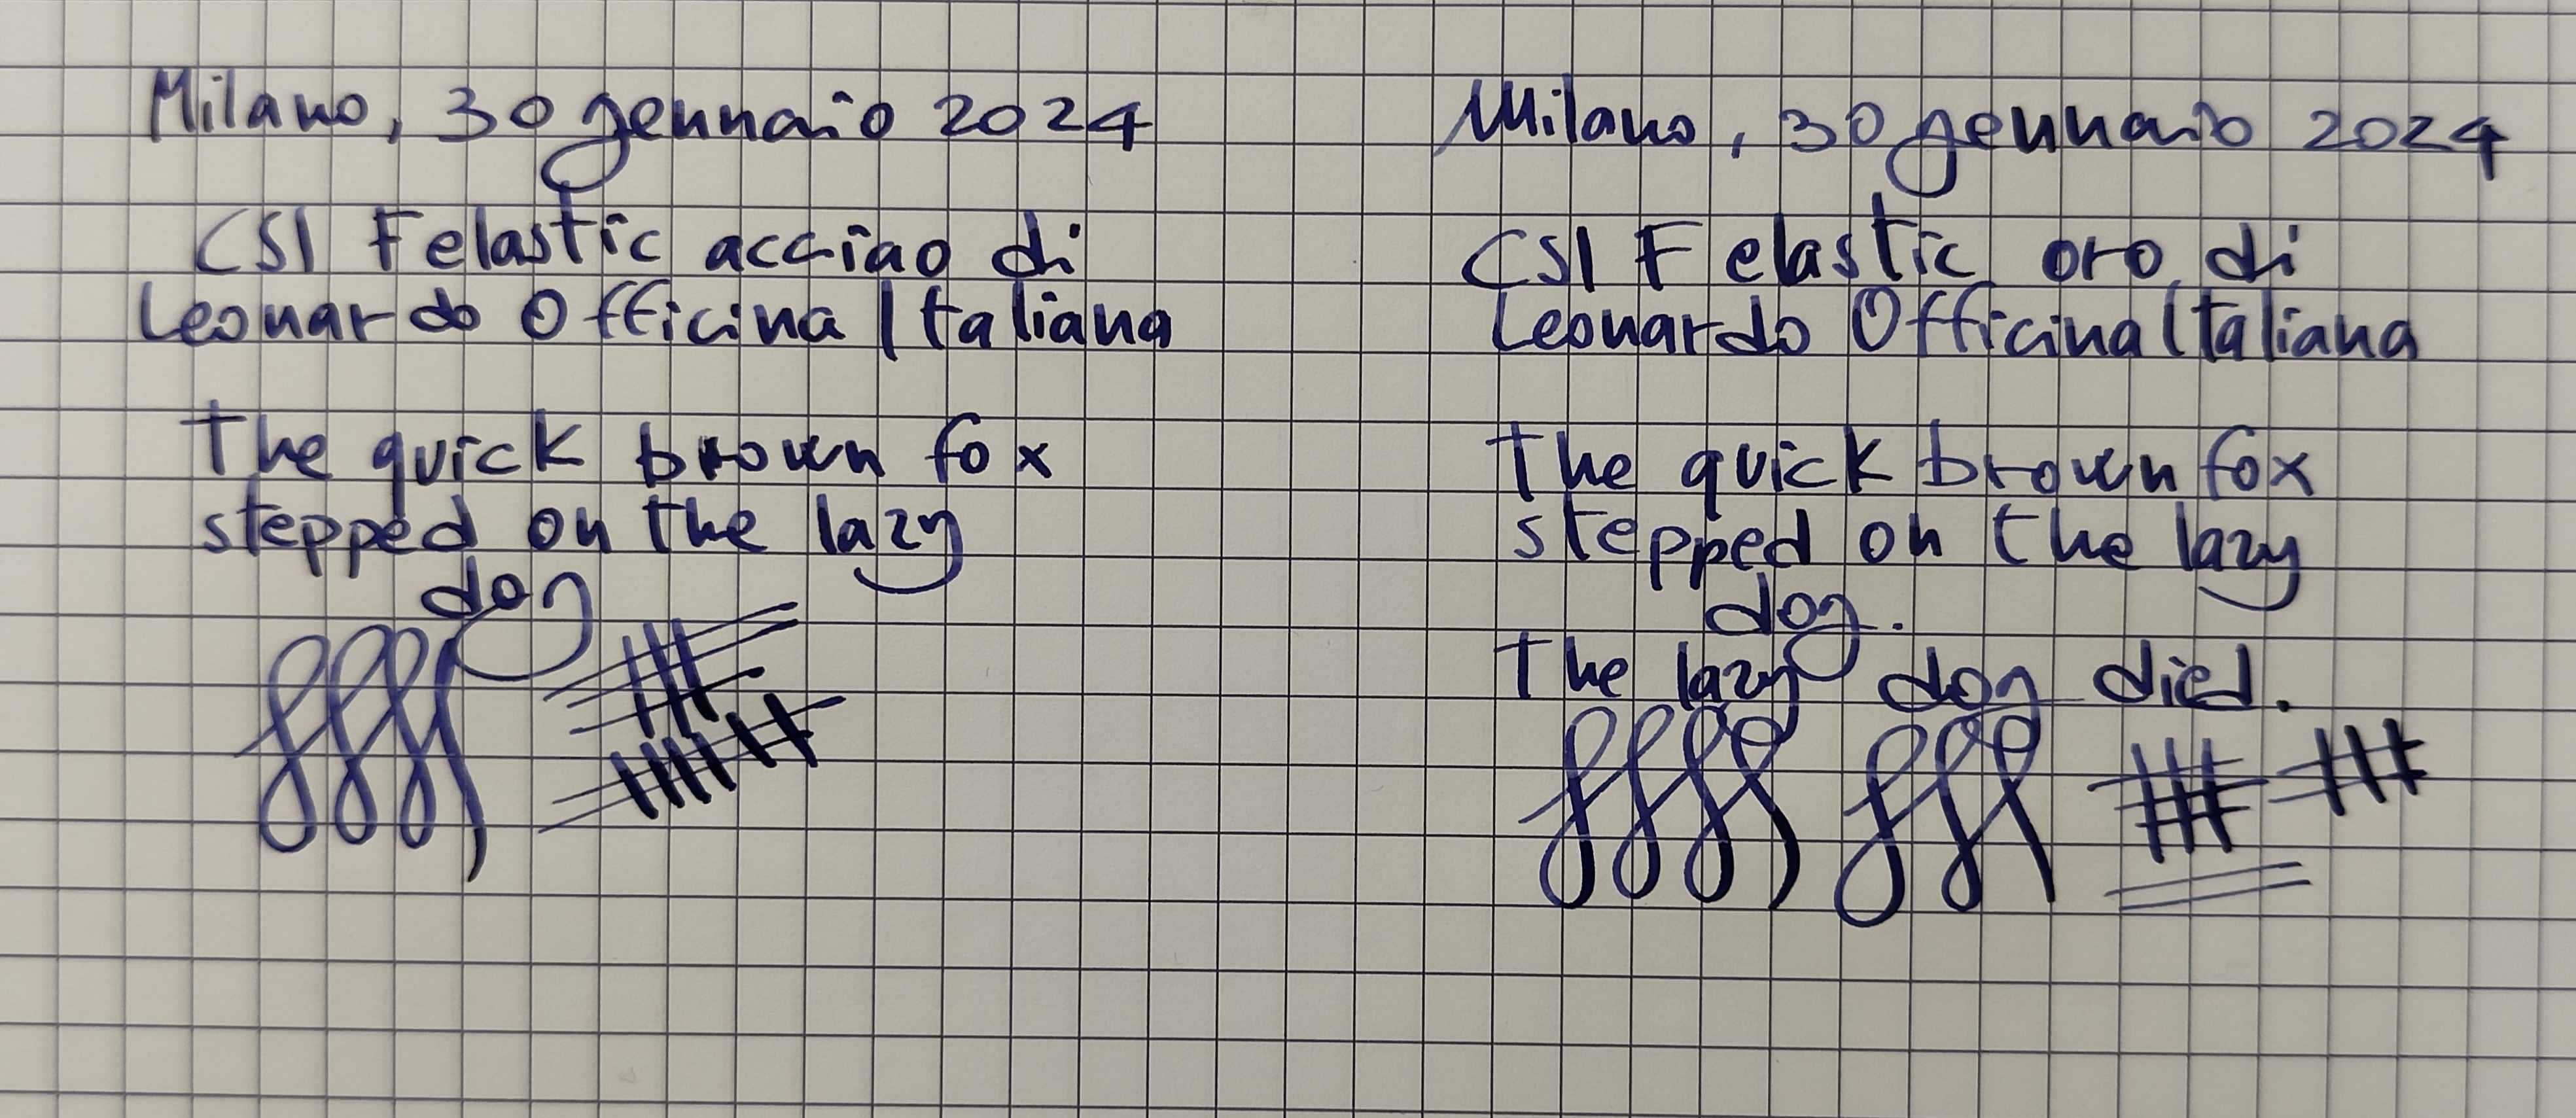 Milano, 30 gennaio 2024
CSI F elastic acciao di
Leonardo Officina Italiana
The quick brown fox
stepped on the lazy
dog
Milano, 30 gennaio 2024
CSI F elastic oro di
Leonardo Officina Italiana
The quick brown fox
stepped on the lazy
dog.
The lazy dog died.